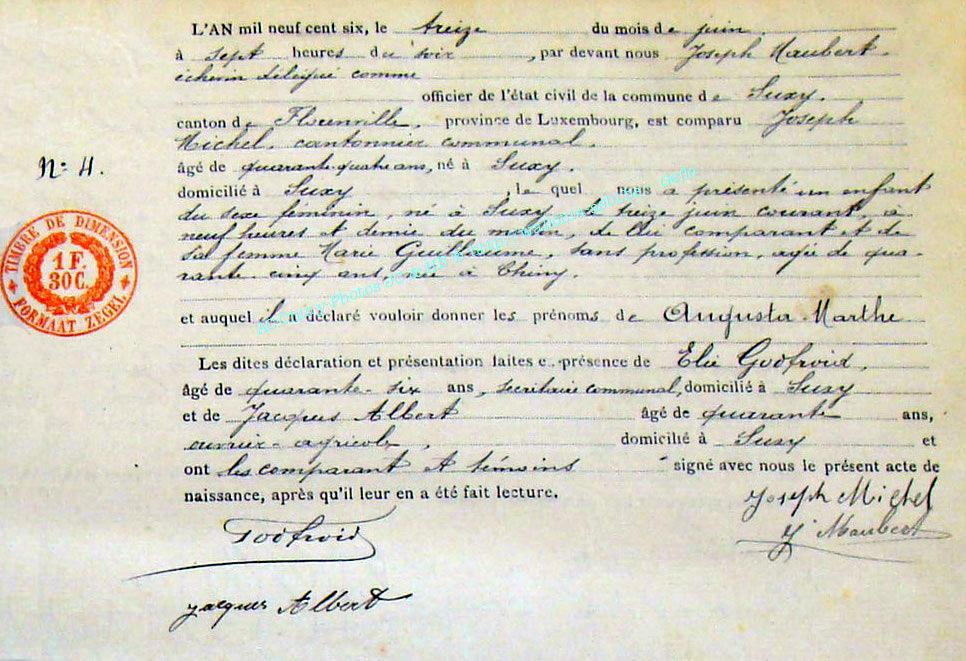 L'AN mil neuf cent six, le treize du mois de juin
à sept heures du soir, par devant nous Joseph Maubert
échevin délégué comme
officier de l'état civil de la commune de Suxy,
canton de Florenville, province de Luxembourg, est comparu Joseph
Michel, cantonnier communal,
âgé de quarante-quatre ans, né à Suxy,
domicilié à Suxy, le quel nous a présenté un enfant
du sexe féminin, né à Suxy, le treize juin courant, à
neuf heures et demie du matin, de lui comparant et de
sa femme Marie Guillaume, sans profession, agée de qua-
rante cinq ans, née à Chiny.
N° 4.
TIMBRE DE DIMENSION
1 F.
30 C.
FORMAAT ZEGEL
et auquel il a déclaré vouloir donner les prénoms de Augusta Marthe
Les dites déclaration et présentation faites e. présence de Elie Godfroid,
âgé de quarante-six ans, secrétaire communal, domicilié à Suxy
et de Jacques Albert âgé de quarante ans,
ouvrier-agricole, domicilié à Suxy et
ont les comparant et témoins signé avec nous le présent acte de
naissance, après qu'il leur en a été fait lecture.
Joseph Michel
J Maubert
Godfroid
Jacques Albert